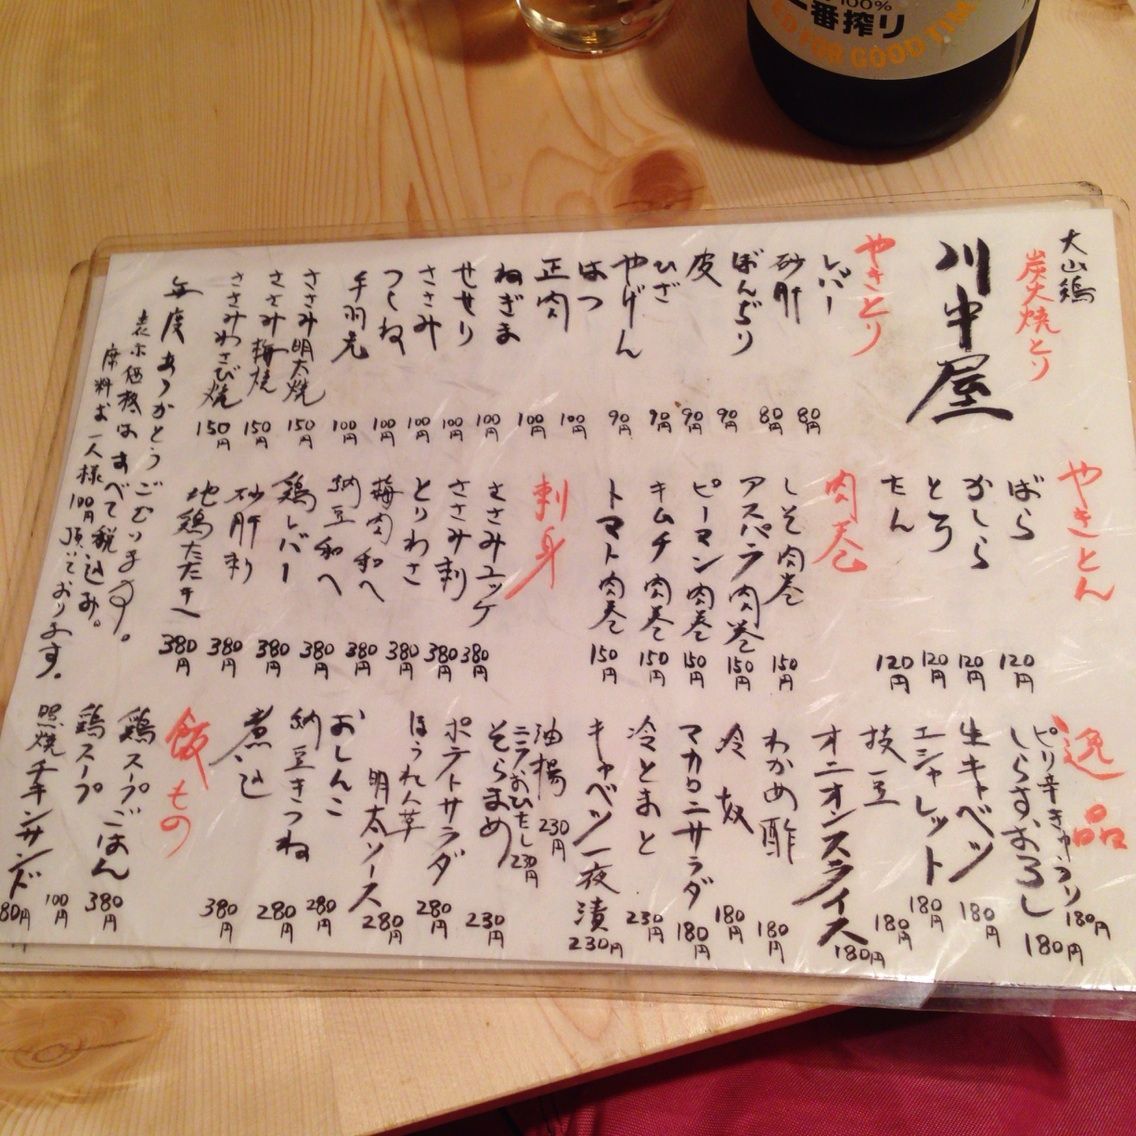 100%
一番搾り
ED FOR GOOD TIM
大山鶏
炭火焼とり
川中屋
やきとり
レバー 80円
砂肝 80円
ぼんぢり 90円
皮 90円
ひざ 90円
やげん 90円
はつ 100円
正肉 100円
ねぎま 100円
せせり 100円
ささみ 100円
つくね 100円
手羽先 100円
ささみ明太焼 150円
ささみ梅焼 150円
ささみわさび焼 150円
毎度ありがとうございます。
表示価格はすべて税込み。
席料お一人様100円頂いております。
やきとん
ばら 120円
かしら 120円
とろ 120円
たん 120円
肉巻
しそ肉巻 150円
アスパラ肉巻 150円
ピーマン肉巻 150円
キムチ肉巻 150円
トマト肉巻 150円
刺身
ささみユッケ 380円
ささみ刺 380円
とりわさ 380円
梅肉和へ 380円
納豆和へ 380円
鶏レバー 380円
砂肝刺 380円
地鶏たたき 380円
逸品
ピリ辛きゅうり 180円
しらすおろし 180円
生キャベツ 180円
エシャレット 180円
枝豆 180円
オニオンスライス 180円
わかめ酢 180円
冷奴 180円
マカロニサラダ 180円
冷とまと 230円
キャベツ一夜漬 230円
油揚 230円
ニラおひたし 230円
そらまめ 230円
ポテトサラダ 280円
ほうれん草明太ソース 280円
おしんこ 280円
納豆きつね 280円
煮込 380円
飯もの
鶏スープごはん 380円
鶏スープ 100円
照焼チキンサンド 80円